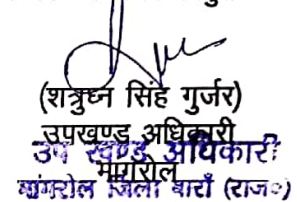 (शत्रुघ्न सिंह गुर्जर)
उपखण्ड अधिकारी
उप खण्ड अधिकारी
मांगरोल
मांगरोल जिला बाराँ (राज०)